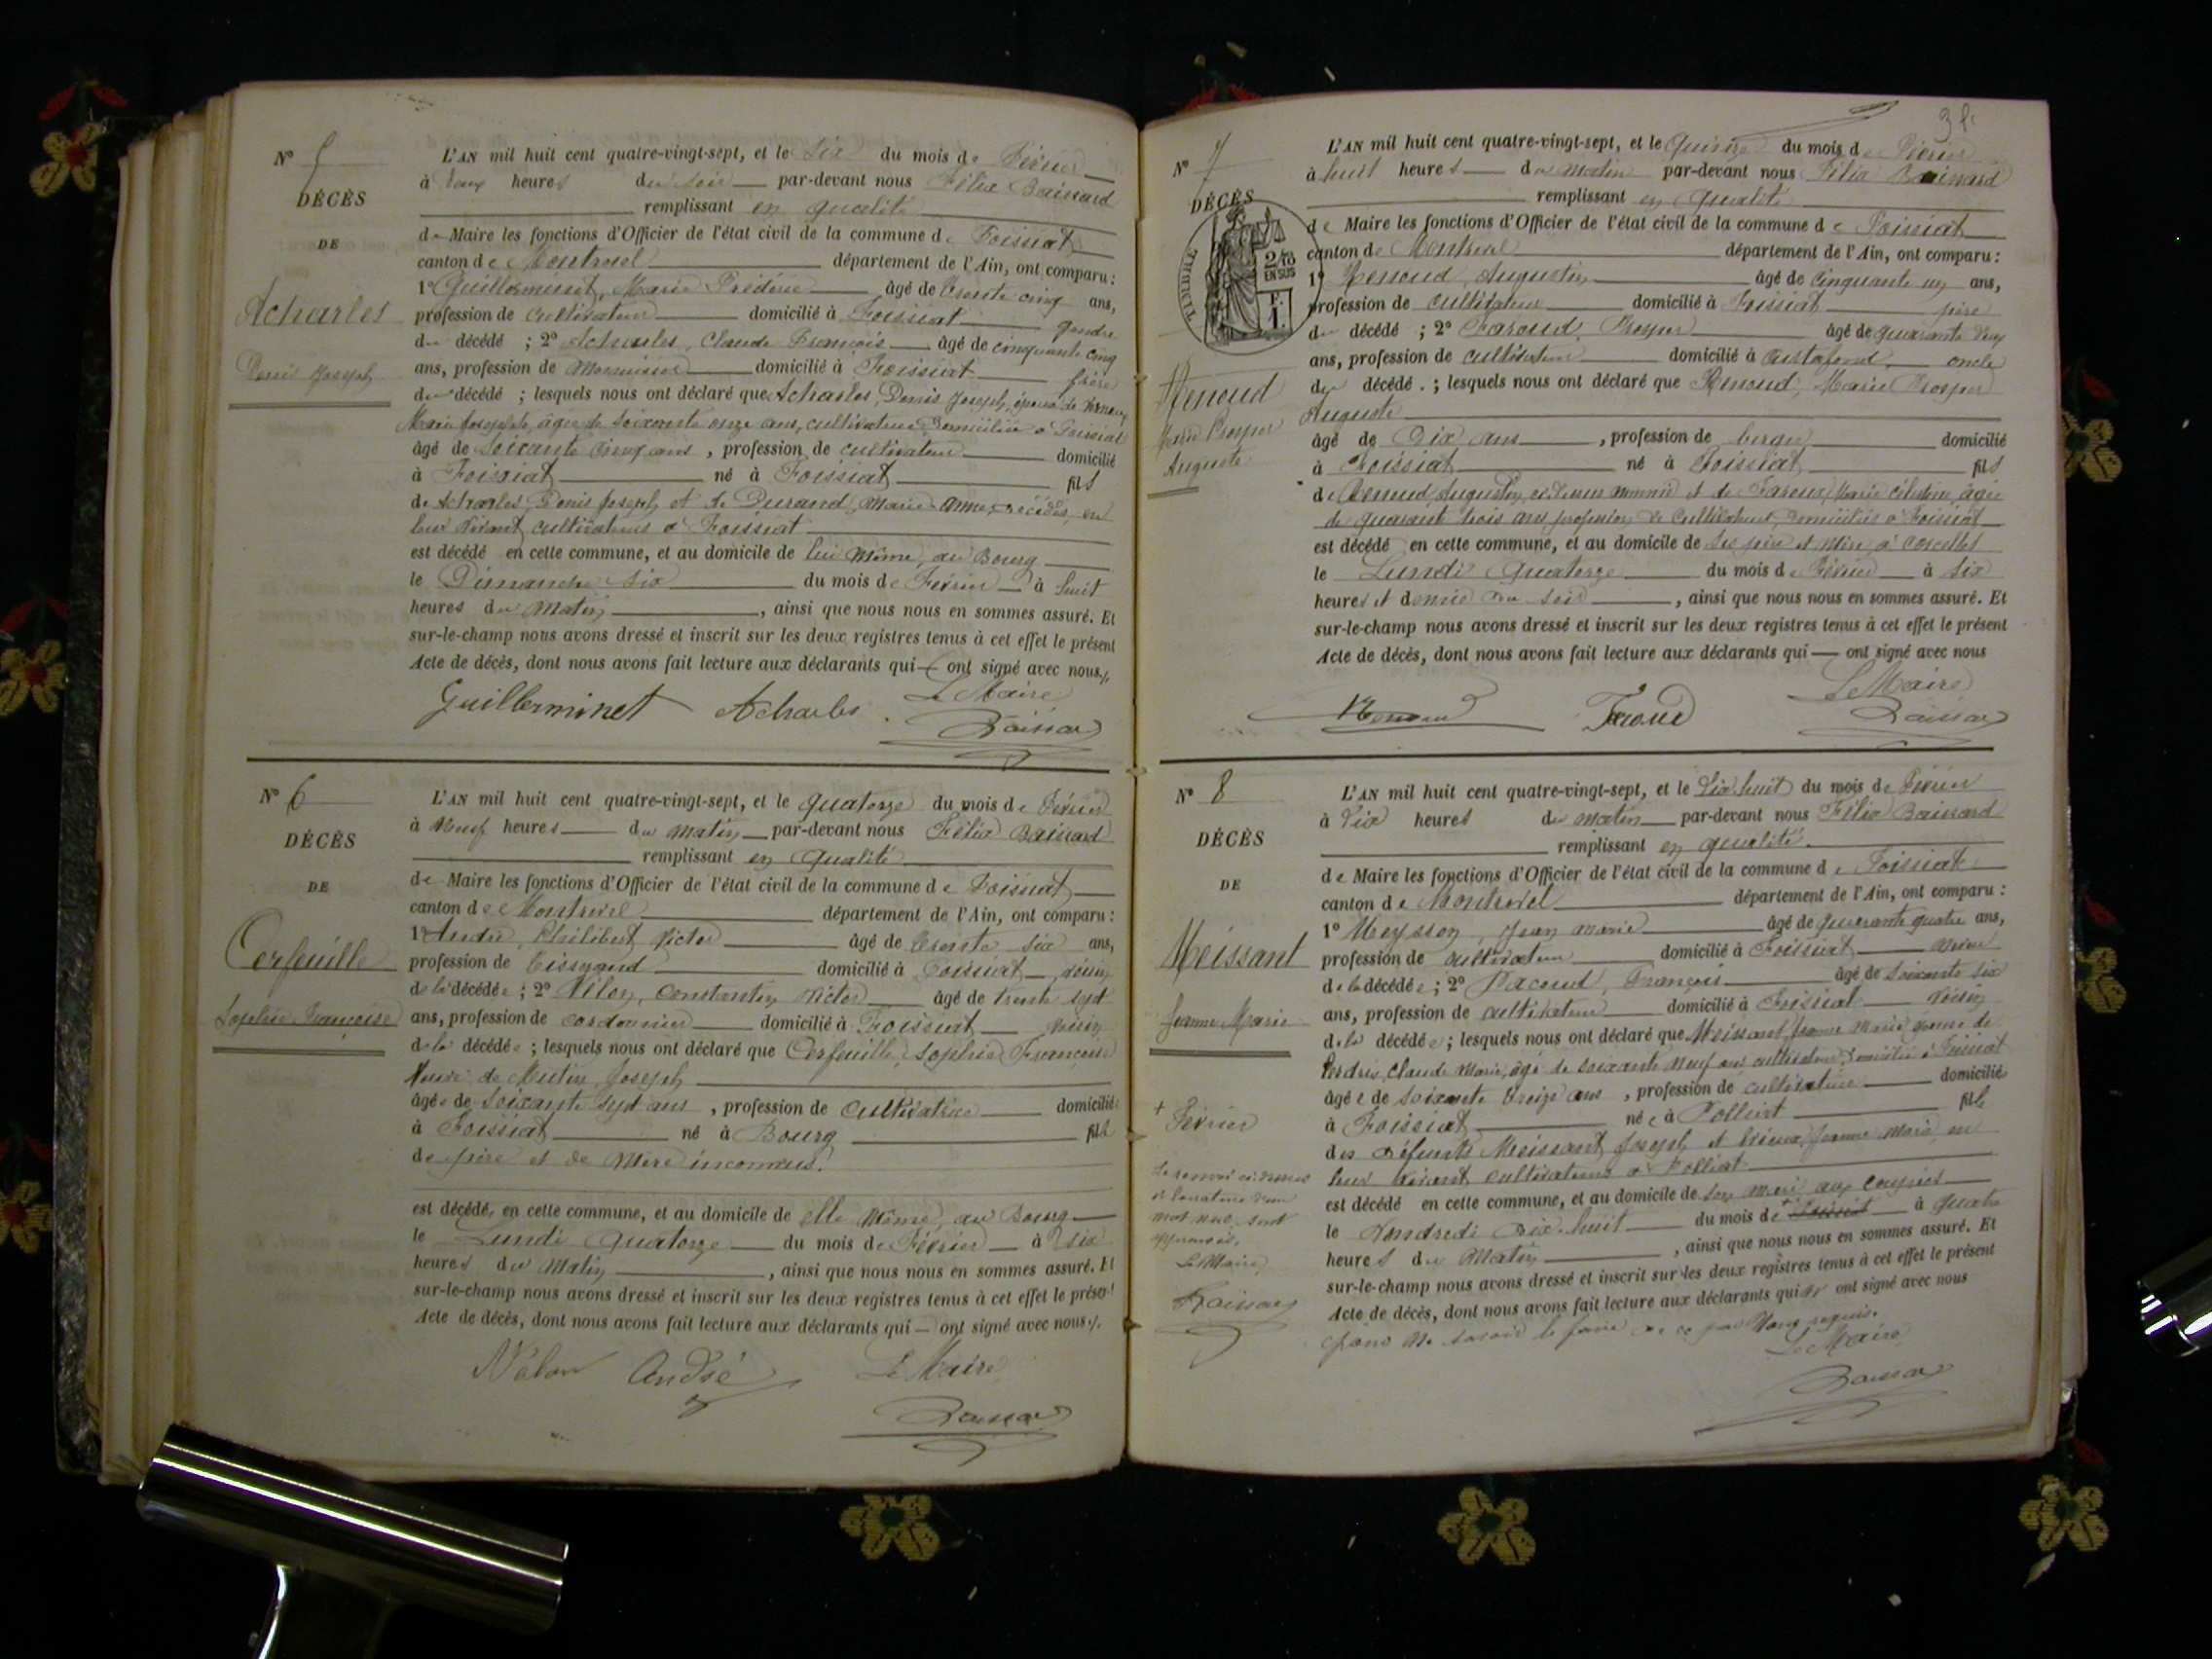 N° 5
DÉCÈS
DE
Acharles
Denis Joseph
L'AN mil huit cent quatre-vingt-sept, et le six du mois de Février
à deux heures du soir par-devant nous Félix Baissard
remplissant en qualité
de Maire les fonctions d'Officier de l'état civil de la commune de Foissiat
canton de Montrevel département de l'Ain, ont comparu :
1° Guillerminet, Marie Frédéric âgé de trente cinq ans,
profession de cultivateur domicilié à Foissiat gendre
du décédé ; 2° Acharles, Claude François âgé de cinquante cinq
ans, profession de domicilié à Foissiat frère
du décédé ; lesquels nous ont déclaré que Acharles, Denis Joseph, époux de
Marie Josephte, âgée de soixante onze ans, cultivatrice, domiciliée à Foissiat
âgé de soixante cinq ans, profession de cultivateur domicilié
à Foissiat né à Foissiat fils
de Acharles, Denis Joseph et de Durand, Marie Anne, décédés, en
leur vivant cultivateurs à Foissiat
est décédé en cette commune, et au domicile de lui même, au Bourg
le Dimanche six du mois de Février à huit
heures du matin, ainsi que nous nous en sommes assuré. Et
sur-le-champ nous avons dressé et inscrit sur les deux registres tenus à cet effet le présent
Acte de décès, dont nous avons fait lecture aux déclarants qui ont signé avec nous.
Guillerminet Acharles Le Maire
Baissard
N° 6
DÉCÈS
DE
Cerfeuille
Sophie Françoise
L'AN mil huit cent quatre-vingt-sept, et le quatorze du mois de Février
à neuf heures du matin par-devant nous Félix Baissard
remplissant en qualité
de Maire les fonctions d'Officier de l'état civil de la commune de Foissiat
canton de Montrevel département de l'Ain, ont comparu :
1° André, Philibert Victor âgé de trente six ans,
profession de tisserand domicilié à Foissiat voisin
de la décédée ; 2° Velon, Constantin Victor âgé de trente sept
ans, profession de cordonnier domicilié à Foissiat voisin
de la décédée ; lesquels nous ont déclaré que Cerfeuille, Sophie Françoise
veuve de Mutin, Joseph
âgée de soixante sept ans, profession de cultivatrice domiciliée
à Foissiat né à Bourg fille
de père et de mère inconnus.
est décédée en cette commune, et au domicile de elle même, au Bourg
le Lundi quatorze du mois de Février à six
heures du matin, ainsi que nous nous en sommes assuré. Et
sur-le-champ nous avons dressé et inscrit sur les deux registres tenus à cet effet le présent
Acte de décès, dont nous avons fait lecture aux déclarants qui ont signé avec nous.
Velon André Le Maire
Baissard
N° 7
DÉCÈS
TIMBRE
2/10
EN SUS
F.
1.
Renoud
Marie Prosper
Auguste
L'AN mil huit cent quatre-vingt-sept, et le quinze du mois de Février
à huit heures du matin par-devant nous Félix Baissard
remplissant en qualité
de Maire les fonctions d'Officier de l'état civil de la commune de Foissiat
canton de Montrevel département de l'Ain, ont comparu :
1° Renoud, Augustin âgé de cinquante un ans,
profession de cultivateur domicilié à Foissiat père
du décédé ; 2° Faroud, Prosper âgé de quarante deux
ans, profession de cultivateur domicilié à oncle
du décédé ; lesquels nous ont déclaré que Renoud, Marie Prosper
Auguste
âgé de dix ans, profession de berger domicilié
à Foissiat né à Foissiat fils
de Renoud, Augustin, ci-dessus nommé et de Marie Célestine, âgée
de quarante trois ans, profession de cultivateurs, domiciliés à Foissiat
est décédé en cette commune, et au domicile de ses père et mère, à Corcelles
le Lundi quatorze du mois de Février à six
heures et demie du soir, ainsi que nous nous en sommes assuré. Et
sur-le-champ nous avons dressé et inscrit sur les deux registres tenus à cet effet le présent
Acte de décès, dont nous avons fait lecture aux déclarants qui ont signé avec nous
Renoud Faroud Le Maire
Baissard
N° 8
DÉCÈS
DE
Meissant
Jeanne Marie
+ Février
Le renvoi ci-dessus
et la rature d'un
mot nul, sont
approuvés.
Le Maire
Baissard
L'AN mil huit cent quatre-vingt-sept, et le dix huit du mois de Février
à dix heures du matin par-devant nous Félix Baissard
remplissant en qualité.
de Maire les fonctions d'Officier de l'état civil de la commune de Foissiat
canton de Montrevel département de l'Ain, ont comparu :
1° Meysson, Jean Marie âgé de quarante quatre ans,
profession de cultivateur domicilié à Foissiat
de la décédée ; 2° Pacoud, François âgé de soixante six
ans, profession de cultivateur domicilié à Foissiat voisin
de la décédée ; lesquels nous ont déclaré que Meissant, Jeanne Marie épouse de
Perdrix, Claude Marie, âgé de soixante neuf ans, cultivateur, domicilié à Foissiat
âgée de soixante treize ans, profession de cultivatrice domiciliée
à Foissiat née à Polliat fille
des défunts Meissant, Joseph et Jeanne Marie, en
leur vivant cultivateurs à Polliat
est décédé en cette commune, et au domicile de son mari, aux
le Vendredi dix-huit du mois de + à quatre
heures du matin, ainsi que nous nous en sommes assuré. Et
sur-le-champ nous avons dressé et inscrit sur les deux registres tenus à cet effet le présent
Acte de décès, dont nous avons fait lecture aux déclarants qui n' ont signé avec nous
pour ne savoir le faire de ce par nous requis.
Le Maire
Baissard